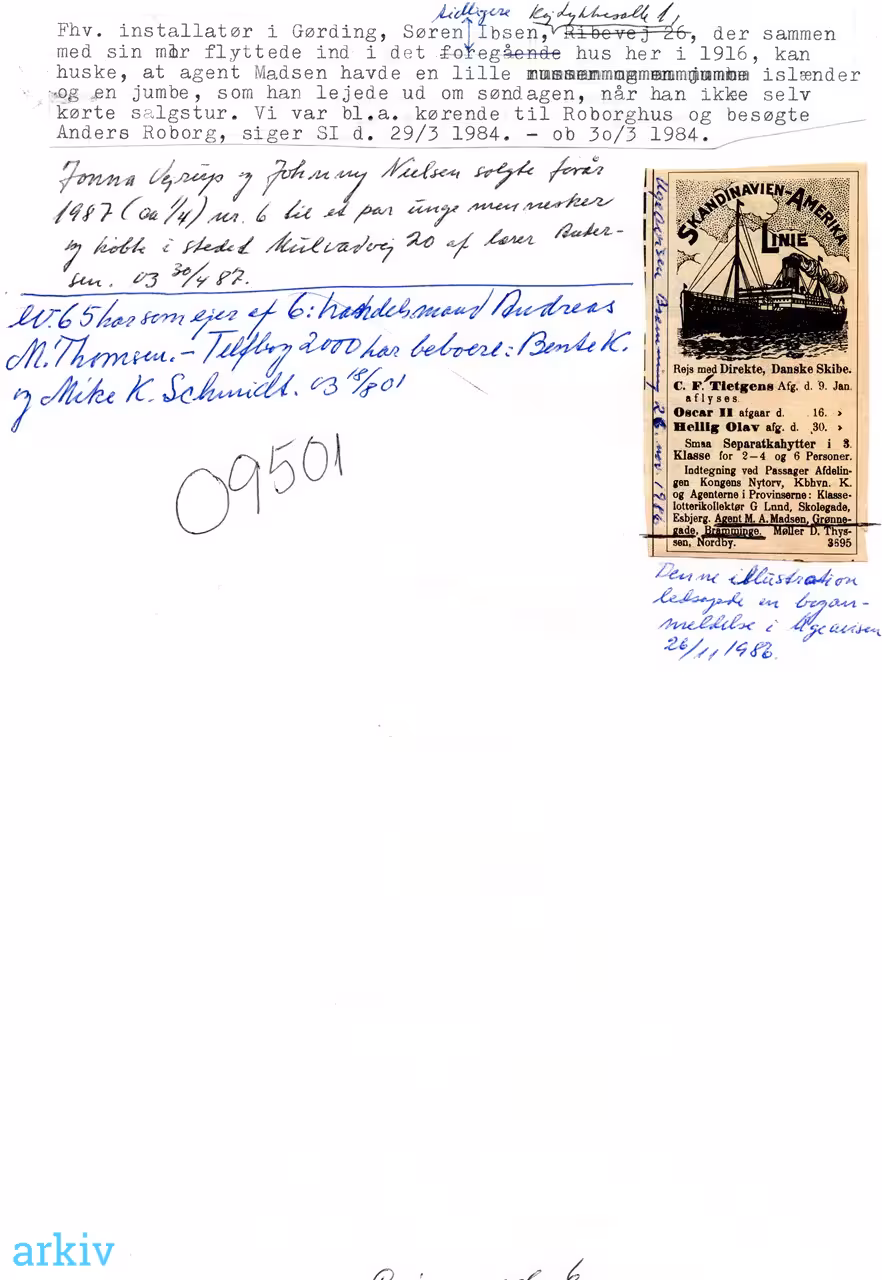 tidligere Kejdykkesalle 1,
Fhv. installatør i Gørding, Søren Ibsen, Ribevej 26, der sammen
med sin mor flyttede ind i det foregående hus her i 1916, kan
huske, at agent Madsen havde en lille islænder
og en jumbe, som han lejede ud om søndagen, når han ikke selv
kørte salgstur. Vi var bl.a. kørende til Roborghus og besøgte
Anders Roborg, siger SI d. 29/3 1984. - ob 3o/3 1984.
Jonna Vejrup og Johnny Nielsen solgte forår
1987 (ca 1/4) nr. 6 til et par unge mennesker
og købte i stedet Mulvadvej 20 af lærer Ander-
sen. 03 30/4 87.
LV.65 har som ejer af 6: handelsmand Andreas
M. Thomsen. - Telfbog 2000 har beboere: Bente K.
og Mike K. Schmidt. 03 18/8 01
09501
SKANDINAVIEN-AMERIKA
LINIE
Rejs med Direkte, Danske Skibe.
C. F. Tietgens Afg. d. 9. Jan.
aflyses.
Oscar II afgaar d. 16. »
Hellig Olav afg. d. 30. »
Smaa Separatkahytter i 3.
Klasse for 2-4 og 6 Personer.
Indtegning ved Passager Afdelin-
gen Kongens Nytorv, Kbhvn. K.
og Agenterne i Provinserne: Klasse-
lotterikollektør G Lund, Skolegade,
Esbjerg. Agent M. A. Madsen, Grønne-
gade, Bramminge. Møller D. Thys-
sen, Nordby. 3695
Ugeavisen Bramming 26. nov. 1986
Denne illustration
ledsagede en bogan-
meldelse i Ugeavisen
26/11 1986.
arkiv